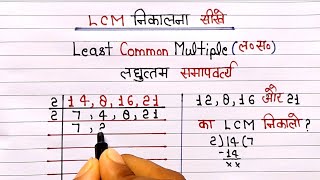 LCM निकालना सीखे
Least Common Multiple (ल॰स॰)
लघुत्तम समापवर्त्य
2 | 14, 8, 16, 21
2 | 7, 4, 8, 21
7, 2
12, 8, 16 और 21
का LCM निकालो ?
2)14(7
-14
x x